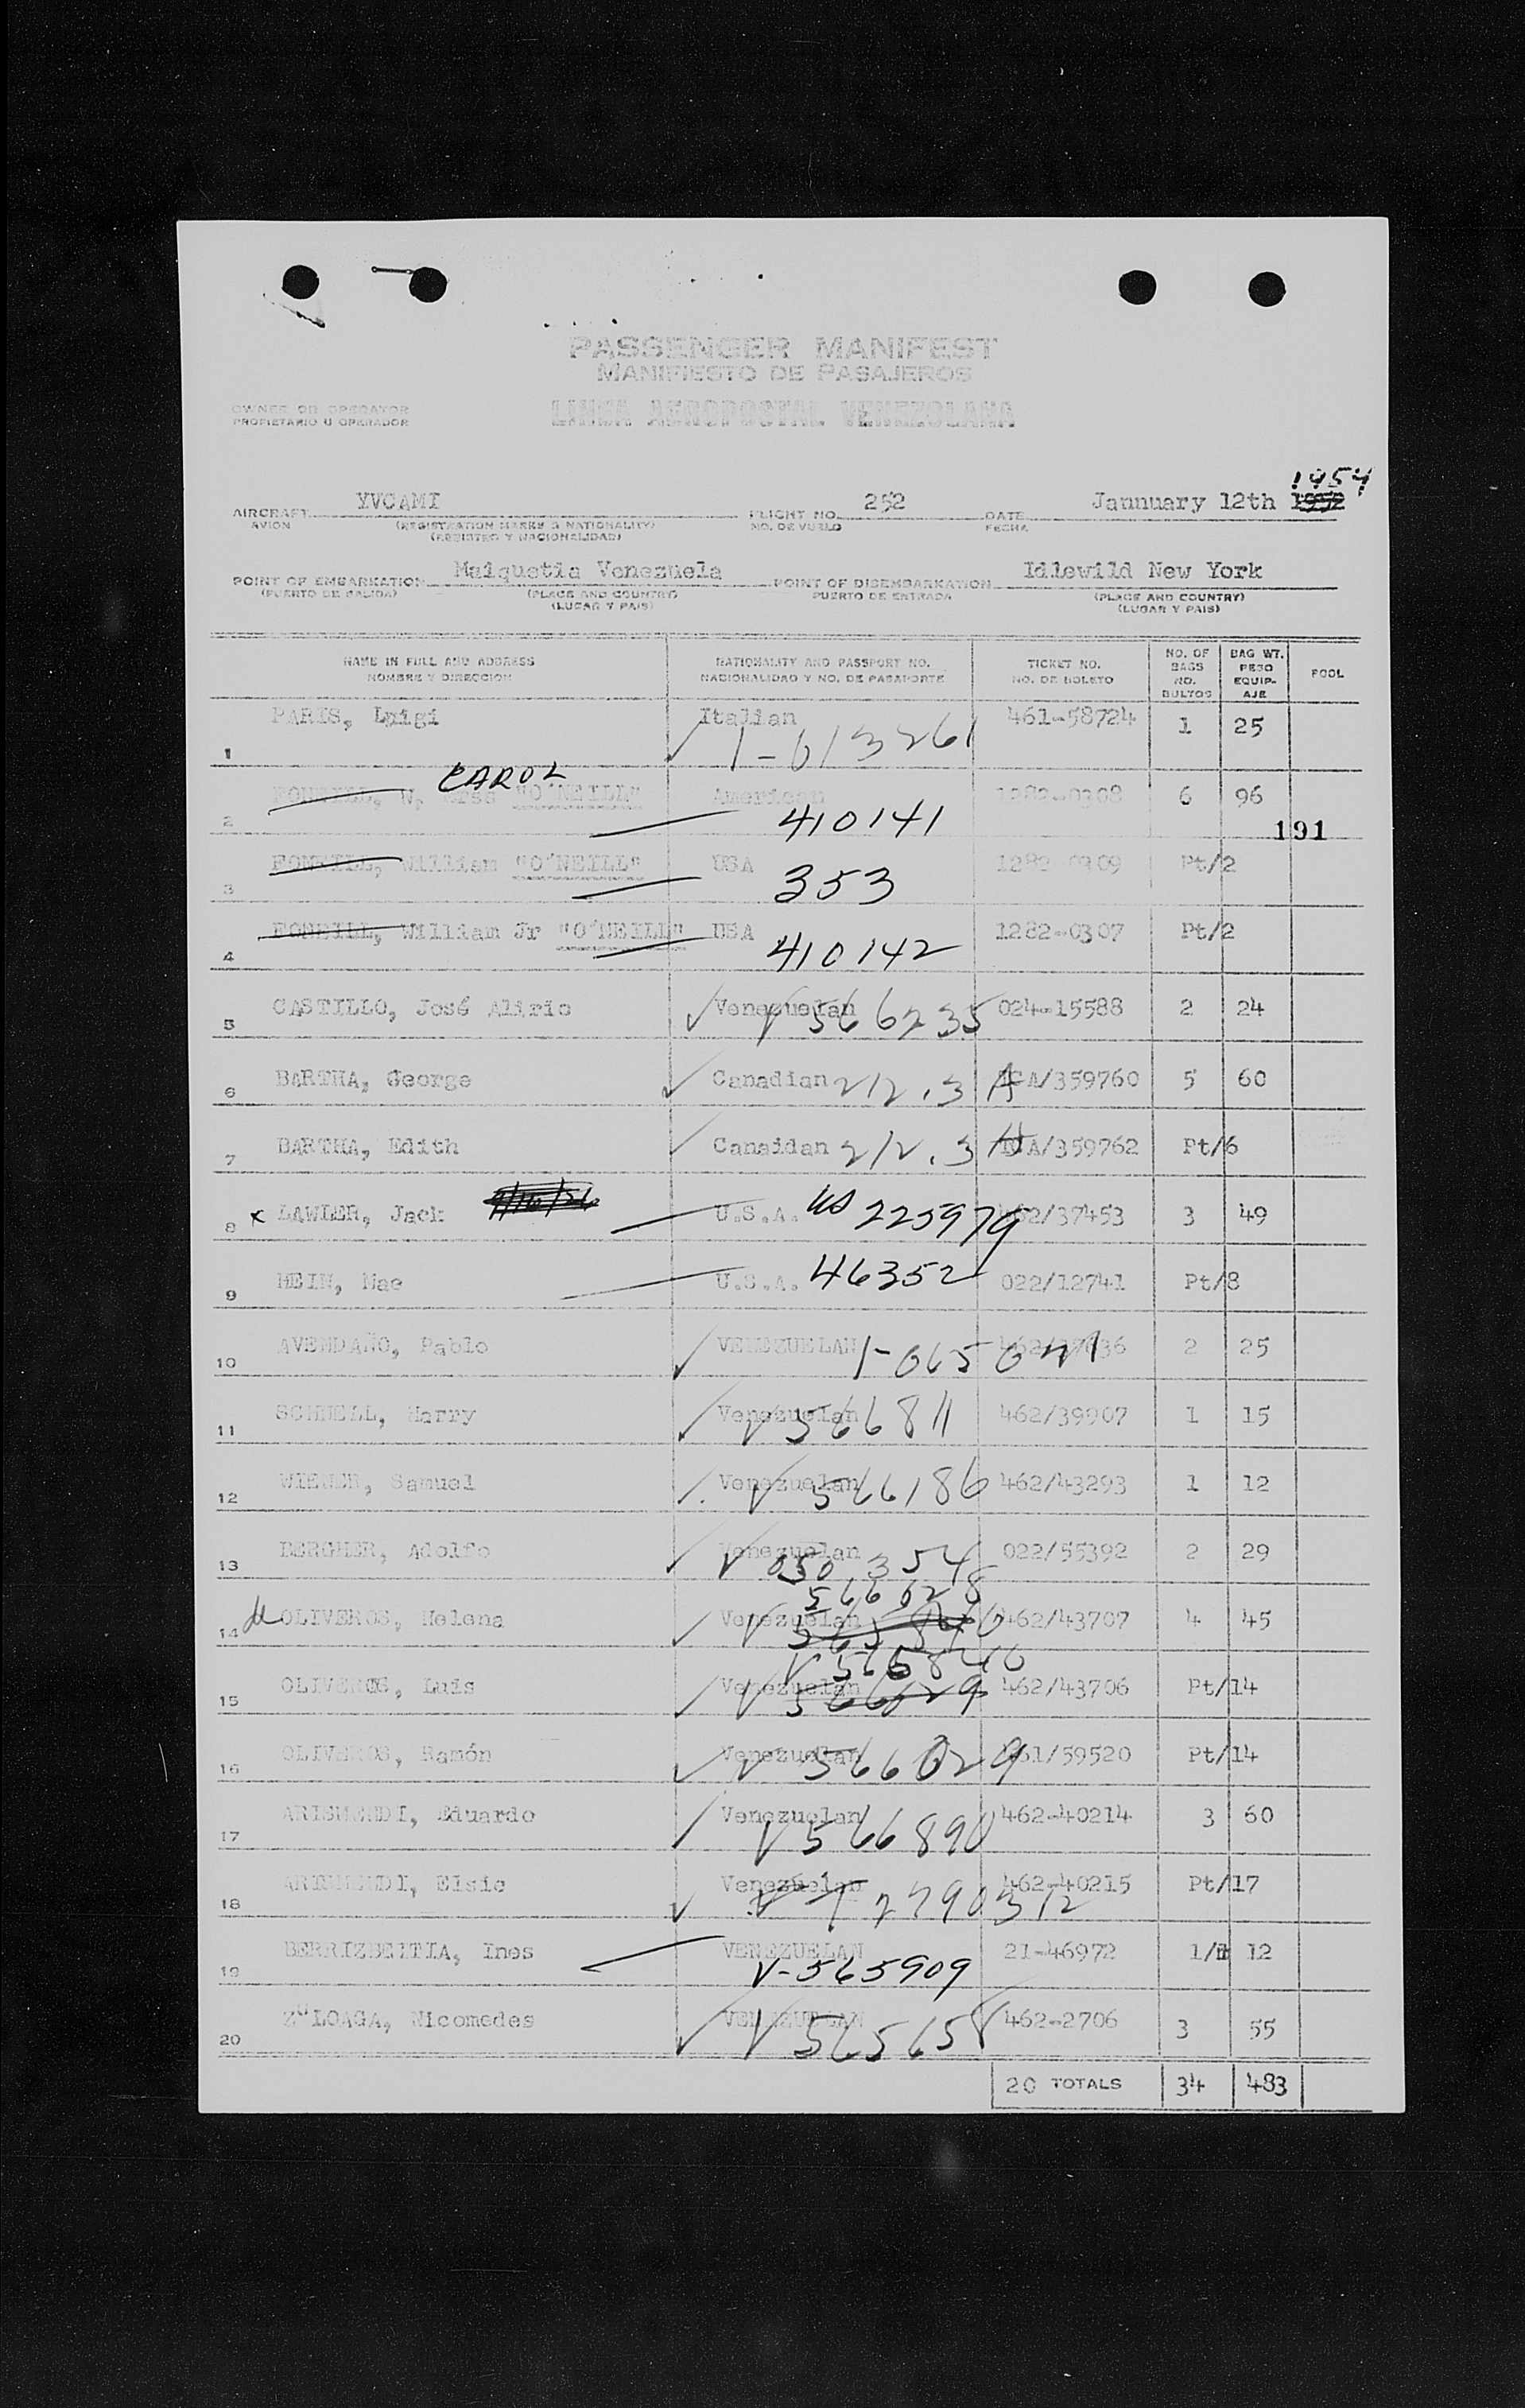 PASSENGER MANIFEST
MANIFIESTO DE PASAJEROS
OWNER OR OPERATOR
PROPIETARIO U OPERADOR
LINEA AEROPOSTAL VENEZOLANA
1954
AIRCRAFT YVCAMI FLIGHT NO. 252 DATE Jannuary 12th 1952
AVION (REGISTRATION MARKS & NATIONALITY) NO. DE VUELO FECHA
(REGISTRO Y NACIONALIDAD)
POINT OF EMBARKATION Maiquetia Venezuela POINT OF DISEMBARKATION Idlewild New York
(PUERTO DE SALIDA) (PLACE AND COUNTRY) PUERTO DE ENTRADA (PLACE AND COUNTRY)
(LUGAR Y PAIS) (LUGAR Y PAIS)
NAME IN FULL AND ADDRESS NATIONALITY AND PASSPORT NO. TICKET NO. NO. OF BAGS BAG WT. POOL
NOMBRE Y DIRECCION NACIONALIDAD Y NO. DE PASAPORTE NO. DE BOLETO NO. BULTOS PESO EQUIPAJE
1 PARIS, Luigi Italian 1-013261 461-58724 1 25
CAROL
2 FONEILL, W, Mrss "O'NEILL" American 410141 1282-0308 6 96
191
3 FONEILL, William "O'NEILL" USA 353 1282-0909 Pt/2
4 FONEILL, William Jr "O'NEILL" USA 410142 1282-0307 Pt/2
5 CASTILLO, José Alirio Venezuelan V 566235 024-15588 2 24
6 BARTHA, George Canadian 212.3 A/359760 5 60
7 BARTHA, Edith Canaidan 212.3 A/359762 Pt/6
8 x LAWLER, Jack U.S.A. US 225979 462/37453 3 49
9 HEIN, Mae U.S.A. 46352 022/12741 Pt/8
10 AVENDAÑO, Pablo VENEZUELAN 1-065041 2 25
11 SCHNELL, Harry Venezuelan V 566811 462/39907 1 15
12 Samuel Venezuelan V 566186 462/43293 1 12
13 BERGHER, Adolfo Venezuelan V 050354 022/55392 2 29
566028
14 OLIVEROS, Helena Venezuelan V 462/43707 4 45
V 565840
15 OLIVEROS, Luis Venezuelan V 566029 462/43706 Pt/14
16 OLIVEROS, Ramón Venezuelan V 566029 461/59520 Pt/14
17 ARISMENDI, Eduardo Venezuelan V 566890 462-40214 3 60
18 ARISMENDI, Elsie Venezuelan 462-40215 Pt/17
19 BERRIZBEITIA, Ines VENEZUELAN V-565909 21-46972 12
20 ZULOAGA, Nicomedes VENEZUELAN V 565658 462-2706 3 55
20 TOTALS 34 483